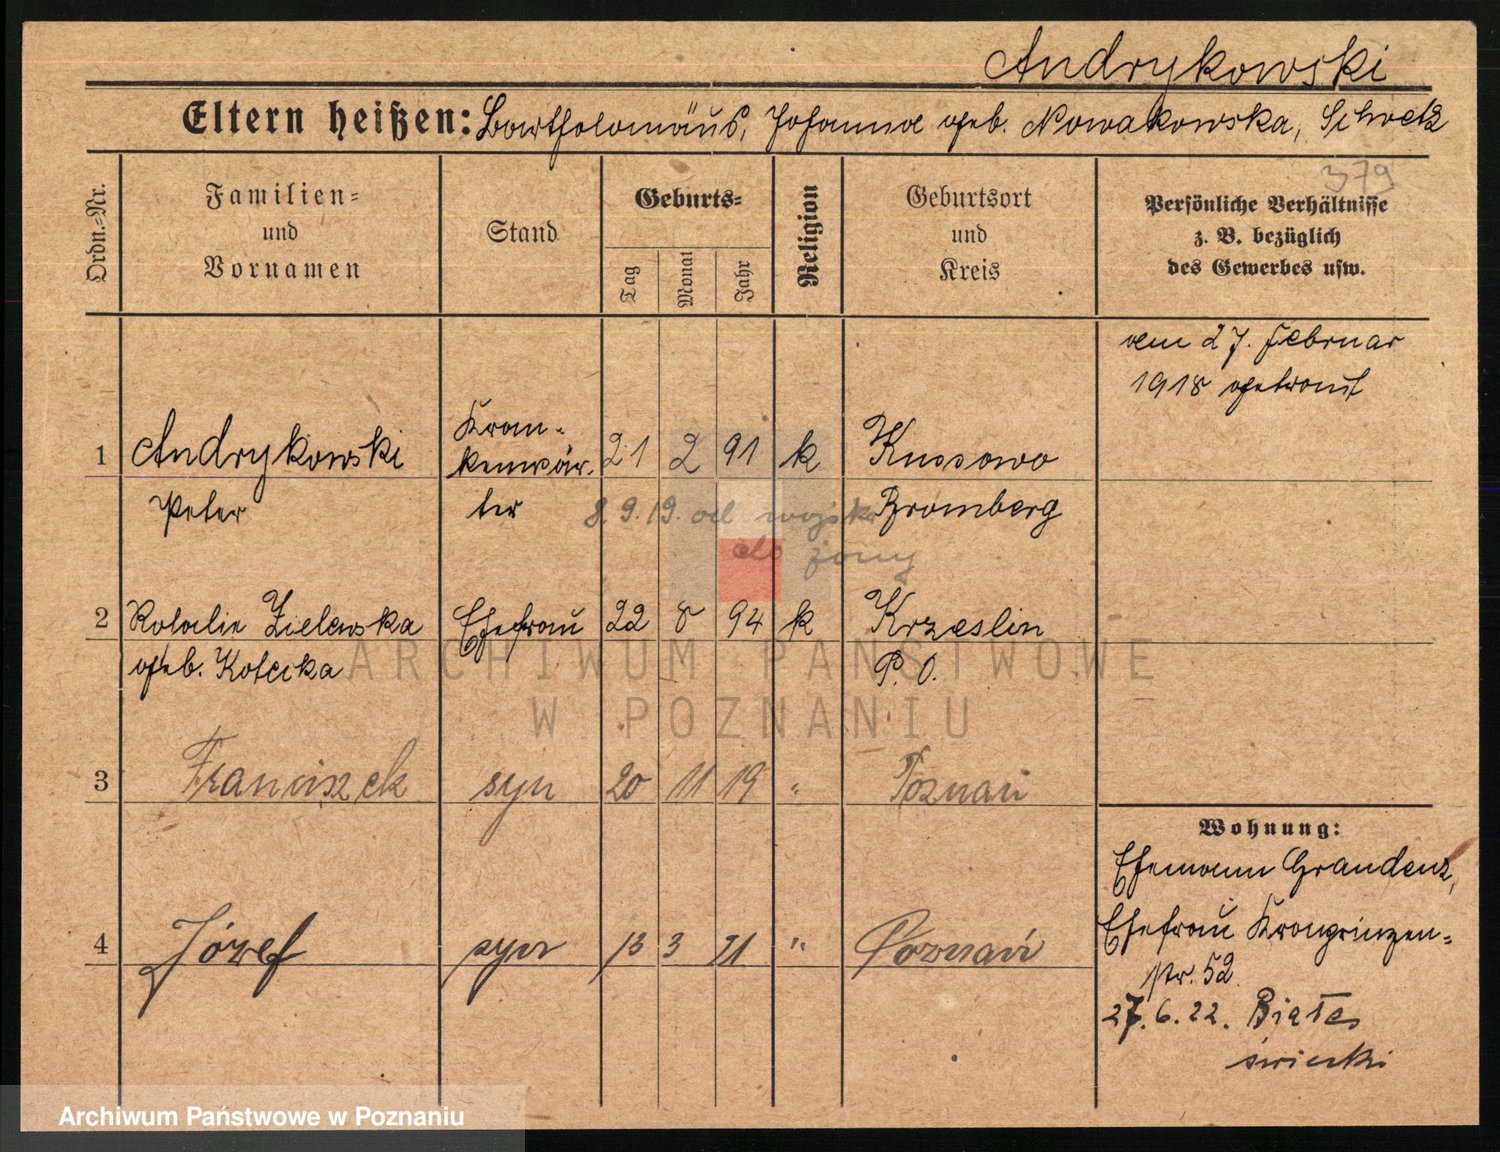 Andrykowski
Eltern heißen: Bartholomäus, Johanna geb. Nowakowska, Schwetz
379
Ordn.=Nr.
Familien=
und
Vornamen
Stand
Geburts=
Tag
Monat
Jahr
Religion
Geburtsort
und
Kreis
Persönliche Verhältnisse
z. B. bezüglich
des Gewerbes usw.
am 27. Februar
1918 getraut
1 Andrykowski Kran= 21 2 91 k Kussowo
Peter kenwär= Bromberg
ter
8.9.19. od wojska
do żony
2 Rosalie Zielewska Ehefrau 22 8 94 k Krzeslin
geb. Kotecka P. O.
3 Franciszek syn 20 11 19 " Poznań
4 Józef syn 13 3 21 " Poznań
Wohnung:
Ehemann Graudenz,
Ehefrau Kronprinzen=
str. 52
27.6.22.
ARCHIWUM PAŃSTWOWE
W POZNANIU
Archiwum Państwowe w Poznaniu